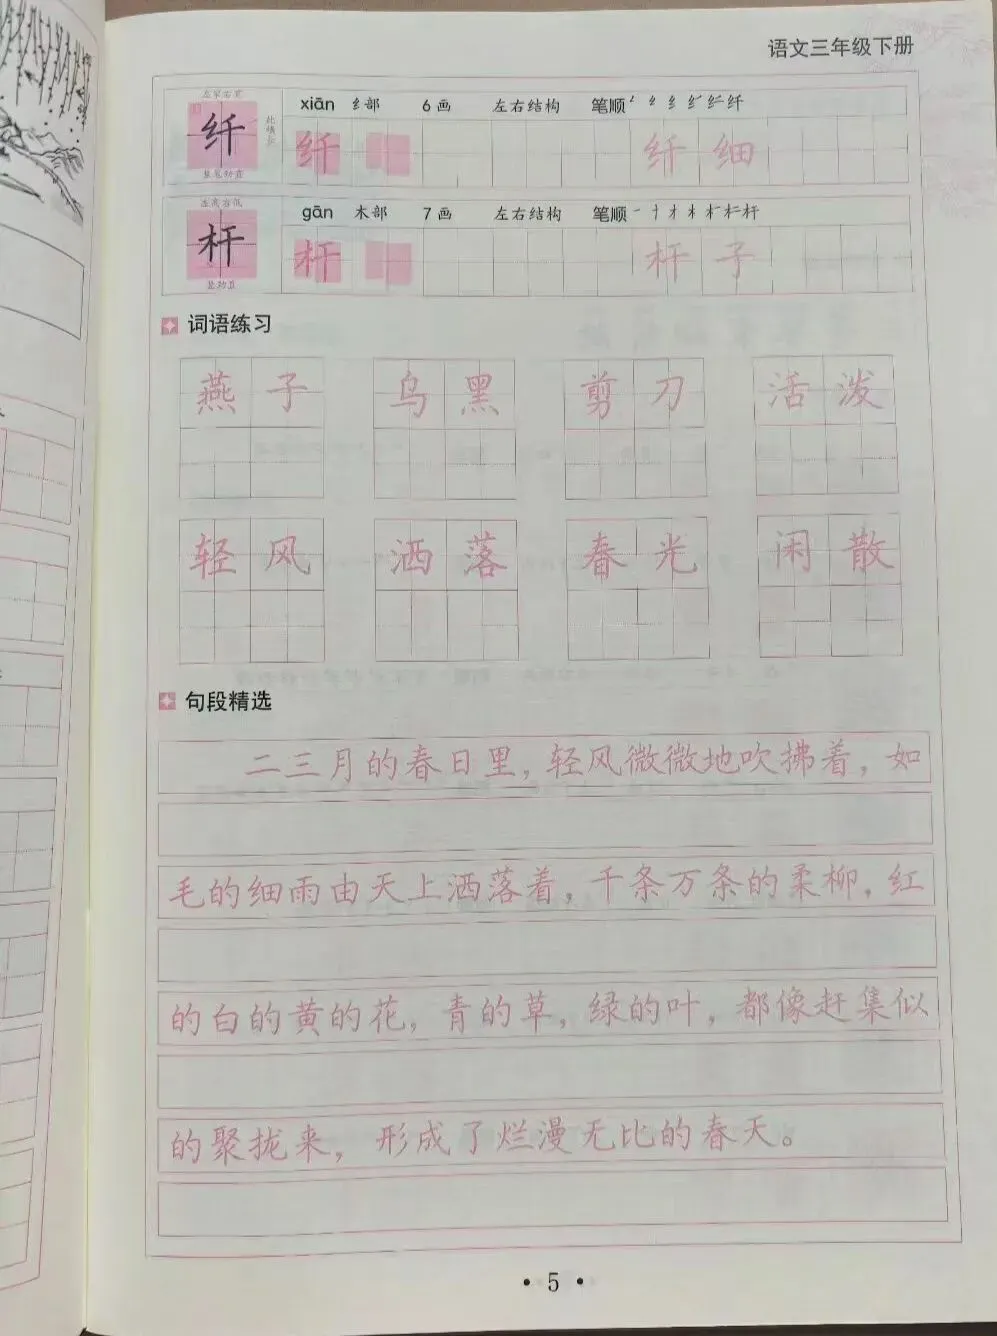 语文三年级下册
左窄右宽
xiān 纟部 6画 左右结构 笔顺
纤
此横长
纤 纤细
gān 木部 7画 左右结构 笔顺一十才木杧杆杆
左高右低
杆
杆 杆子
词语练习
燕子 乌黑 剪刀 活泼
轻风 洒落 春光 闲散
句段精选
二三月的春日里,轻风微微地吹拂着,如
毛的细雨由天上洒落着,千条万条的柔柳,红
的白的黄的花,青的草,绿的叶,都像赶集似
的聚拢来,形成了烂漫无比的春天。
• 5 •